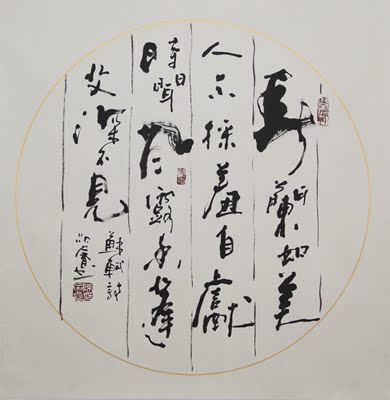 春蘭如美
人不採羞自獻
時聞風露香蓬
艾深不見
蘇軾詩